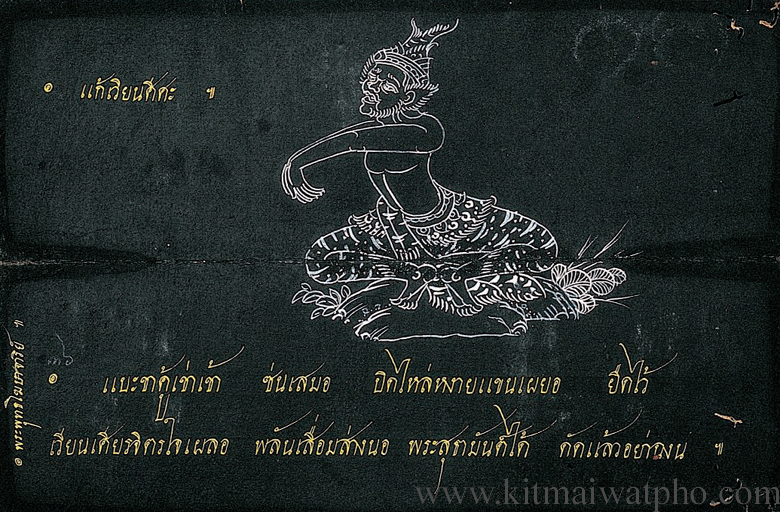 ๏ แก้เวียนศีศะ ๚
๓๖
๏ แบะขาคู้เข่าเข้า ซ่นเสมอ บิดไหล่หงายแขนเผยอ ยืดไว้
เวียนเศียรจิตรใจเผลอ พลันเสื่อมส่างนอ พระสุธามันต์ได้ ดัดแล้วอย่าฉงน ๚
๏ พระพุทธโฆษาจาริย์ ๚
www.kitmaiwatpho.com